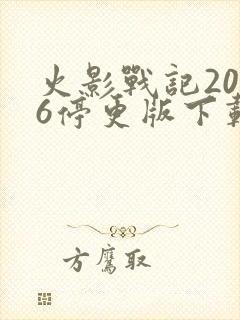 火影戰記20
6停更版下載
方鷹取